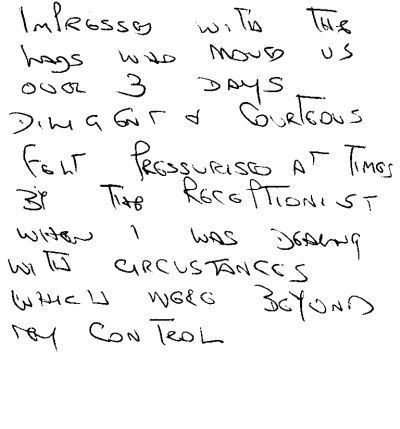 IMPRESSED WITH THE
LADS WHO MOVED US
OVER 3 DAYS
DILIGENT & COURTEOUS
FELT PRESSURISED AT TIMES
BY THE RECEPTIONIST
WHEN I WAS DEALING
WITH CIRCUSTANCES
WHICH WERE BEYOND
MY CONTROL